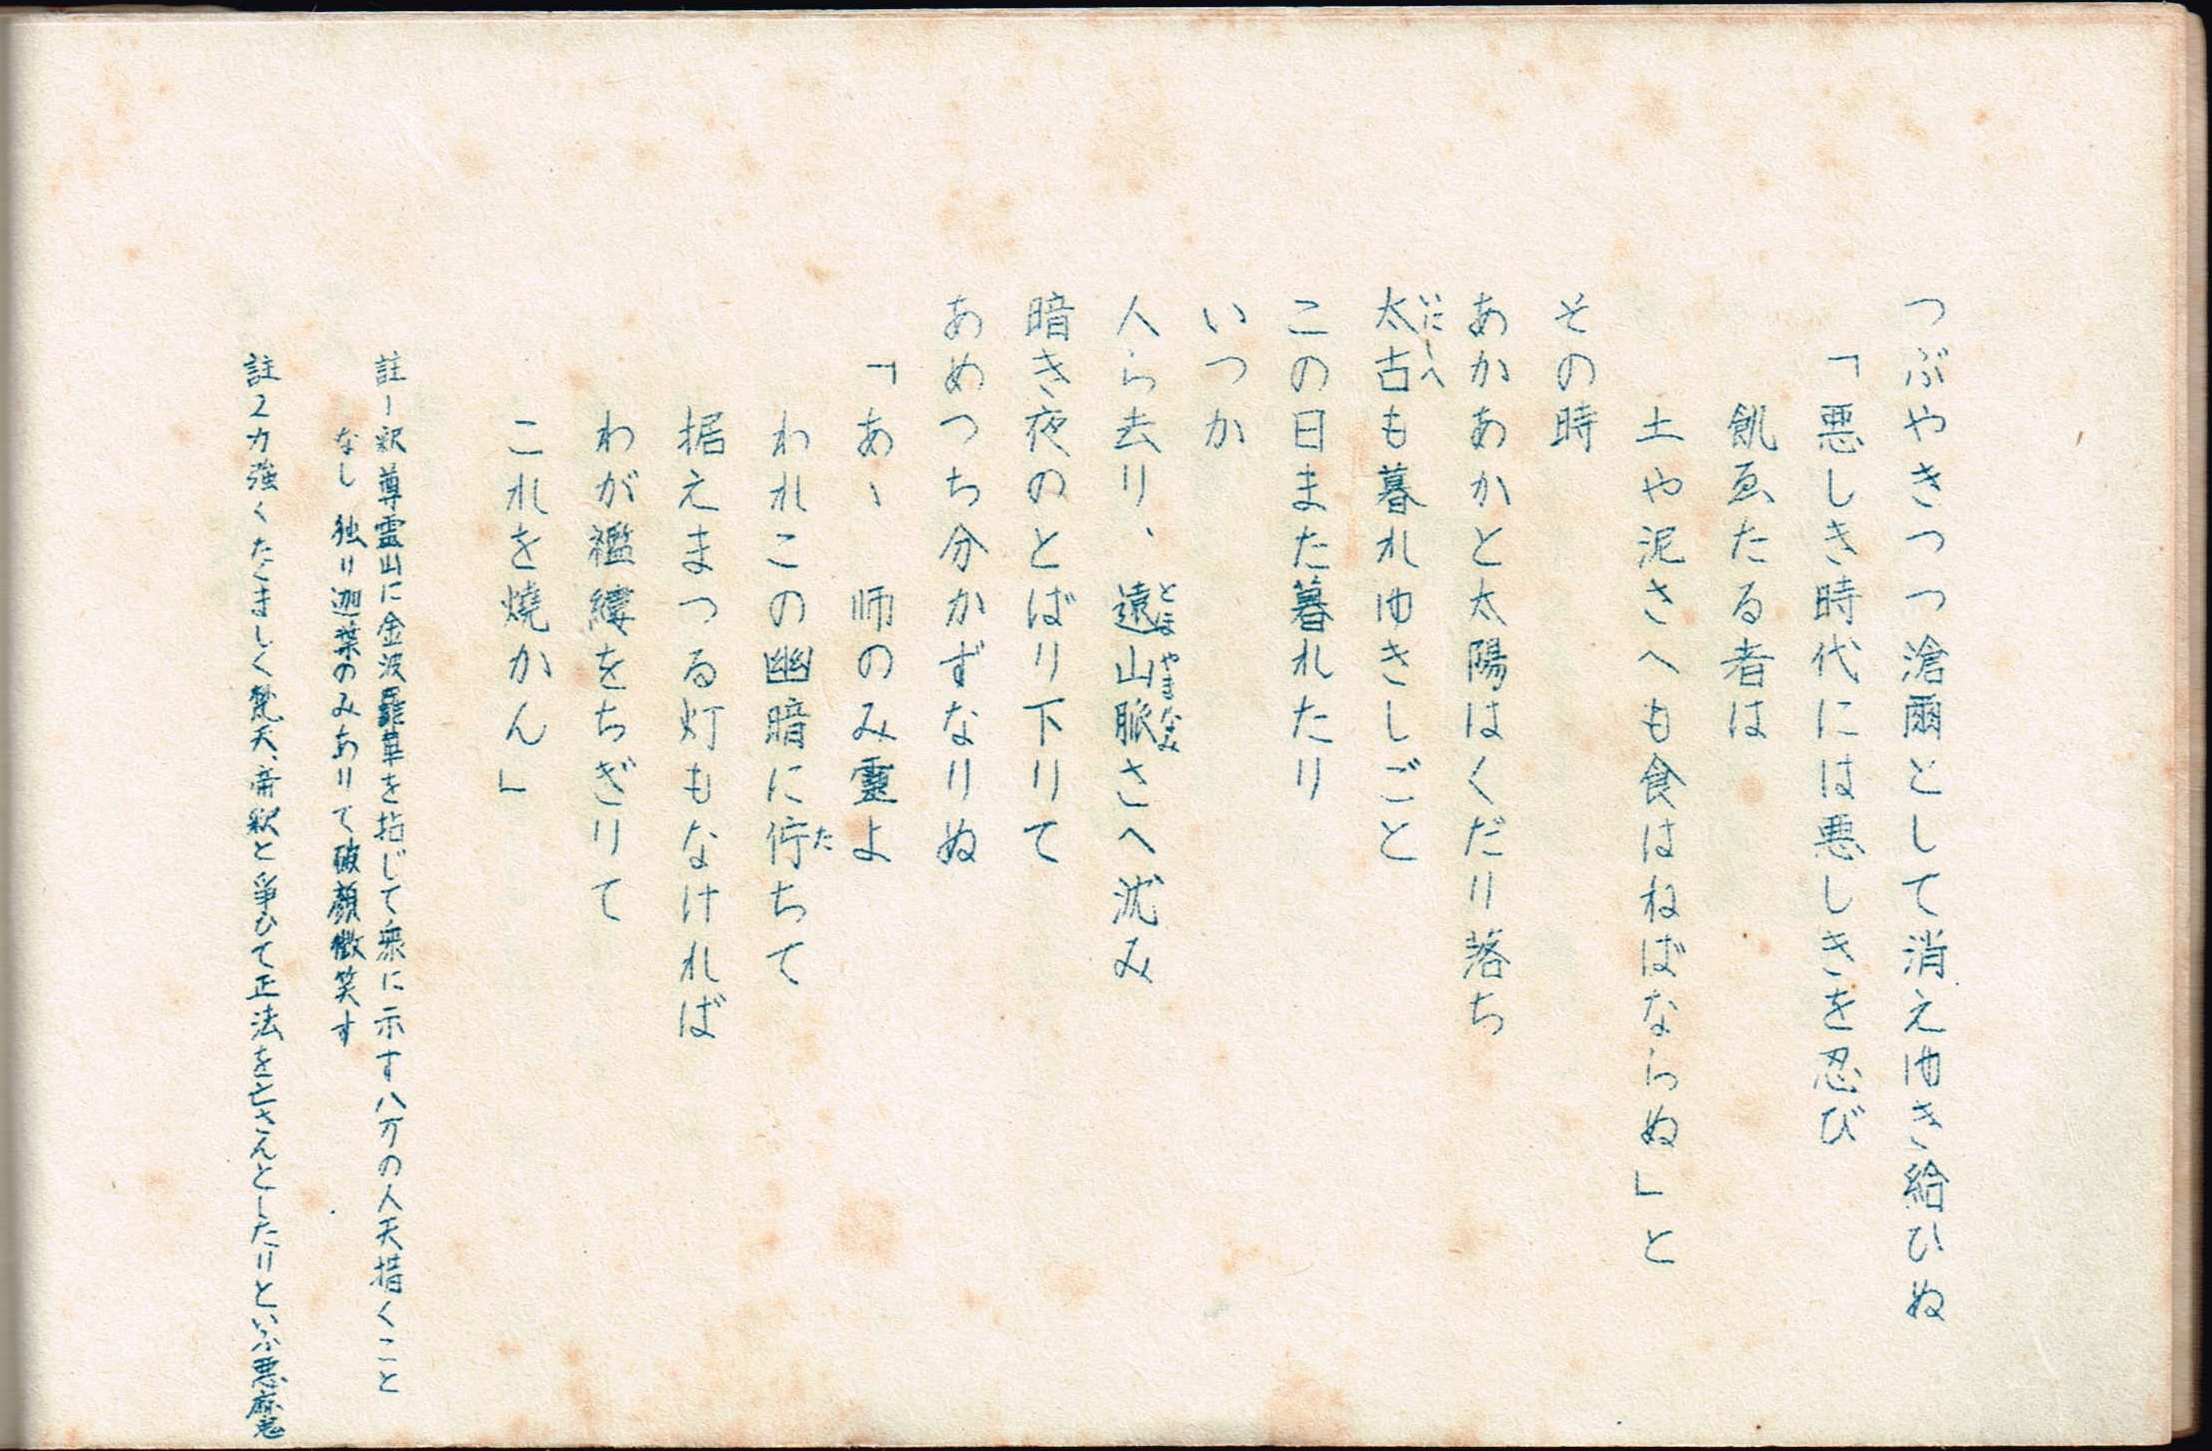 つぶやきつつ滄爾として消えゆき給ひぬ
「悪しき時代には悪しきを忍び
飢ゑたる者は
土や泥さへも食はねばならぬ」と
その時
あかあかと太陽はくだり落ち
太古も暮れゆきしごと
いにしへ
この日また暮れたり
いつか
人ら去り、遠山脈さへ沈み
とほやまなみ
暗き夜のとばり下りて
あめつち分かずなりぬ
「あゝ 師のみ靈よ
われこの幽暗に佇ちて
た
据えまつる灯もなければ
わが襤褸をちぎりて
これを燒かん」
註1釈尊霊山に金波羅華を拈じて衆に示す八万の人天措くこと
なし 独り迦葉のみありて破顔微笑す
註2力強くたくましく梵天、帝釈と爭ひて正法を亡さんとしたりといふ悪魔